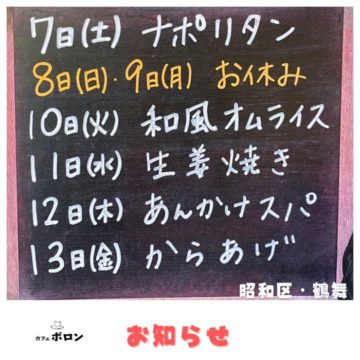 7日(土) ナポリタン
8日(日)・9日(月) お休み
10日(火) 和風オムライス
11日(水) 生姜焼き
12日(木) あんかけスパ
13日(金) からあげ
昭和区・鶴舞
カフェ ポロン
お知らせ